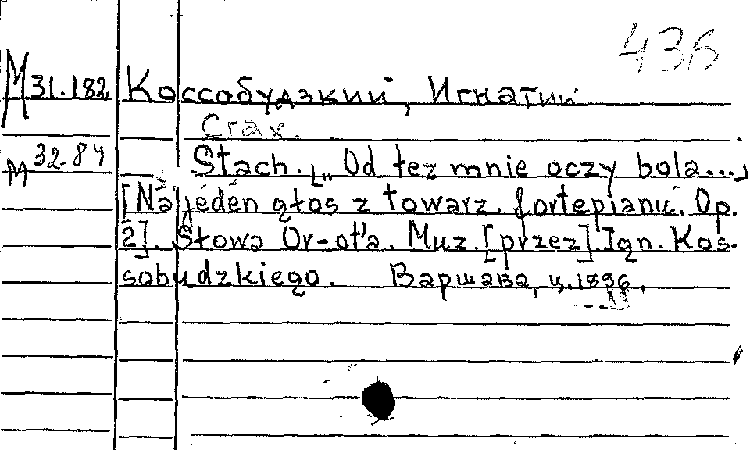 436
M 31.182 Коссобудзкий, Игнатий
Стах.
M 32-84 Stach. [„Od łez mnie oczy bola...]
[Na jeden głos z towarz. fortepianu. Op.
2]. Słowa Or-ot'a. Muz. [przez] Ign. Kos-
sobudzkiego. Варшава, ц. 1896.